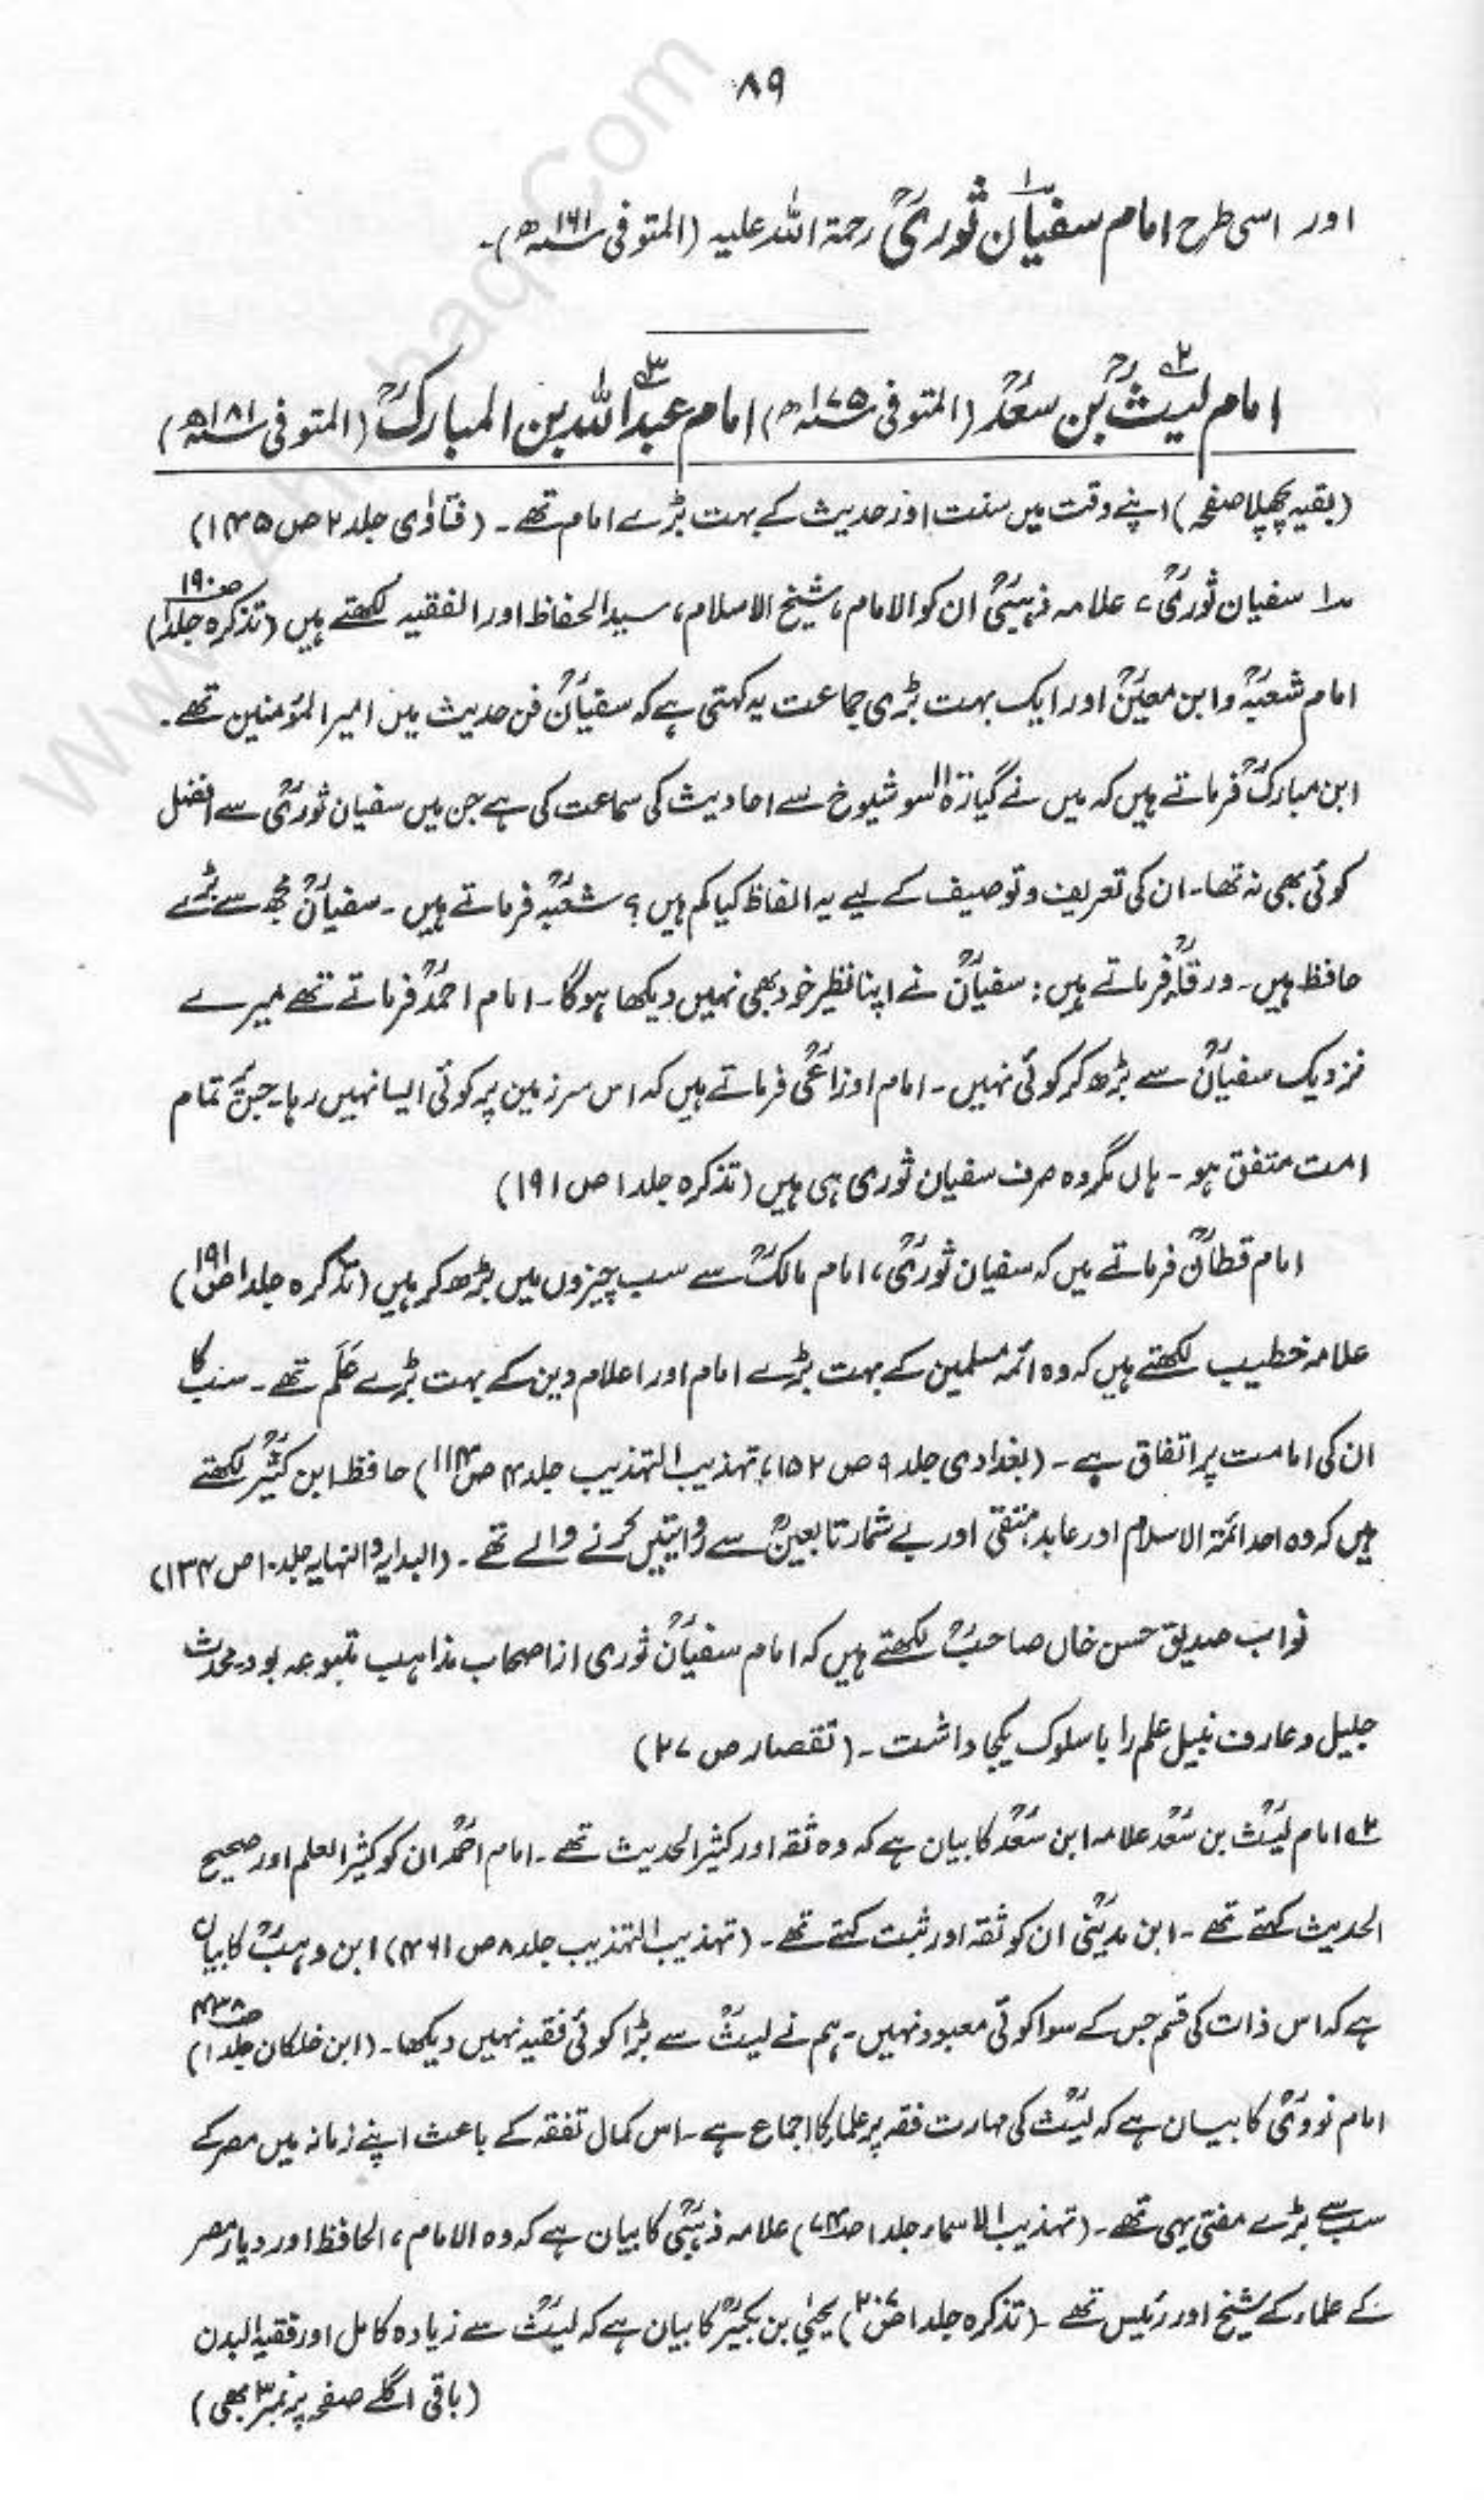 ۸۹
اور اسی طرح امام سفیانؒ ثوریؒ رحمۃ اللہ علیہ (المتوفی ۱۶۱ھ)۔
امام لیثؒ بن سعدؒ (المتوفی ۱۷۵ھ) امام عبداللہ بن المبارکؒ (المتوفی ۱۸۱ھ)
(بقیہ پچھلا صفحہ) اپنے وقت میں سنت اور حدیث کے بہت بڑے امام تھے۔ (فتاوٰی جلد ۲ ص ۱۴۵)
۱ سفیان ثوریؒ، علامہ ذہبیؒ ان کو الامام، شیخ الاسلام، سید الحفاظ اور الفقیہ لکھتے ہیں (تذکرہ جلد ۱ ص ۱۹۰)
امام شعبہؒ و ابن معینؒ اور ایک بہت بڑی جماعت یہ کہتی ہے کہ سفیانؒ فن حدیث میں امیر المؤمنین تھے۔
ابن مبارکؒ فرماتے ہیں کہ میں نے گیارہ سو شیوخ سے احادیث کی سماعت کی ہے جن میں سفیان ثوریؒ سے افضل
کوئی بھی نہ تھا۔ ان کی تعریف و توصیف کے لیے یہ الفاظ کیا کم ہیں؟ شعبہؒ فرماتے ہیں۔ سفیانؒ مجھ سے بڑے
حافظ ہیں۔ ورقاؒء فرماتے ہیں: سفیانؒ نے اپنا نظیر خود بھی نہیں دیکھا ہوگا۔ امام احمدؒ فرماتے تھے میرے
نزدیک سفیانؒ سے بڑھ کر کوئی نہیں۔ امام اوزاعیؒ فرماتے ہیں کہ اس سرزمین پر کوئی ایسا نہیں رہا۔ جس پر تمام
امت متفق ہو۔ ہاں مگر وہ صرف سفیان ثوری ہی ہیں (تذکرہ جلد ۱ ص ۱۹۱)
امام قطانؒ فرماتے ہیں کہ سفیان ثوریؒ، امام مالکؒ سے سب چیزوں میں بڑھ کر ہیں (تذکرہ جلد ۱ ص ۱۹۱)
علامہ خطیب لکھتے ہیں کہ وہ ائمہ مسلمین کے بہت بڑے امام اور اعلام دین کے بہت بڑے عَلَم تھے۔ سب کا
ان کی امامت پر اتفاق ہے۔ (بغدادی جلد ۹ ص ۱۵۲، تہذیب التہذیب جلد ۴ ص ۱۱۴) حافظ ابن کثیرؒ لکھتے
ہیں کہ وہ احد ائمۃ الاسلام اور عابد، متقی اور بے شمار تابعینؒ سے روایتیں کرنے والے تھے۔ (البدایہ والنہایہ جلد ۱۰ ص ۱۳۴)
نواب صدیق حسن خاں صاحبؒ لکھتے ہیں کہ امام سفیانؒ ثوری از اصحاب مذاہب متبوعہ بود۔ محدث
جلیل و عارف نبیل علم را با سلوک یکجا داشت۔ (تقصار ص ۲۷)
۲ امام لیثؒ بن سعدؒ علامہ ابن سعدؒ کا بیان ہے کہ وہ ثقہ اور کثیر الحدیث تھے۔ امام احمدؒ ان کو کثیر العلم اور صحیح
الحدیث کہتے تھے۔ ابن مدینیؒ ان کو ثقہ اور ثبت کہتے تھے۔ (تہذیب التہذیب جلد ۸ ص ۴۶۱) ابن وہبؒ کا بیان
ہے کہ اس ذات کی قسم جس کے سوا کوئی معبود نہیں۔ ہم نے لیثؒ سے بڑا کوئی فقیہ نہیں دیکھا۔ (ابن خلکان جلد ۱ ص ۴۳۸)
امام نوویؒ کا بیان ہے کہ لیثؒ کی مہارت فقہ پر علماء کا اجماع ہے۔ اس کمال تفقہ کے باعث اپنے زمانہ میں مصر کے
سب سے بڑے مفتی یہی تھے۔ (تہذیب الاسماء جلد ۱ ص ۷۴) علامہ ذہبیؒ کا بیان ہے کہ وہ الامام، الحافظ اور دیار مصر
کے علماء کے شیخ اور رئیس تھے۔ (تذکرہ جلد ۱ ص ۲۰۷) یحیٰی بن بکیرؒ کا بیان ہے کہ لیثؒ سے زیادہ کامل اور فقیہ البدن
(باقی اگلے صفحہ پر نمبر ۳ بھی)